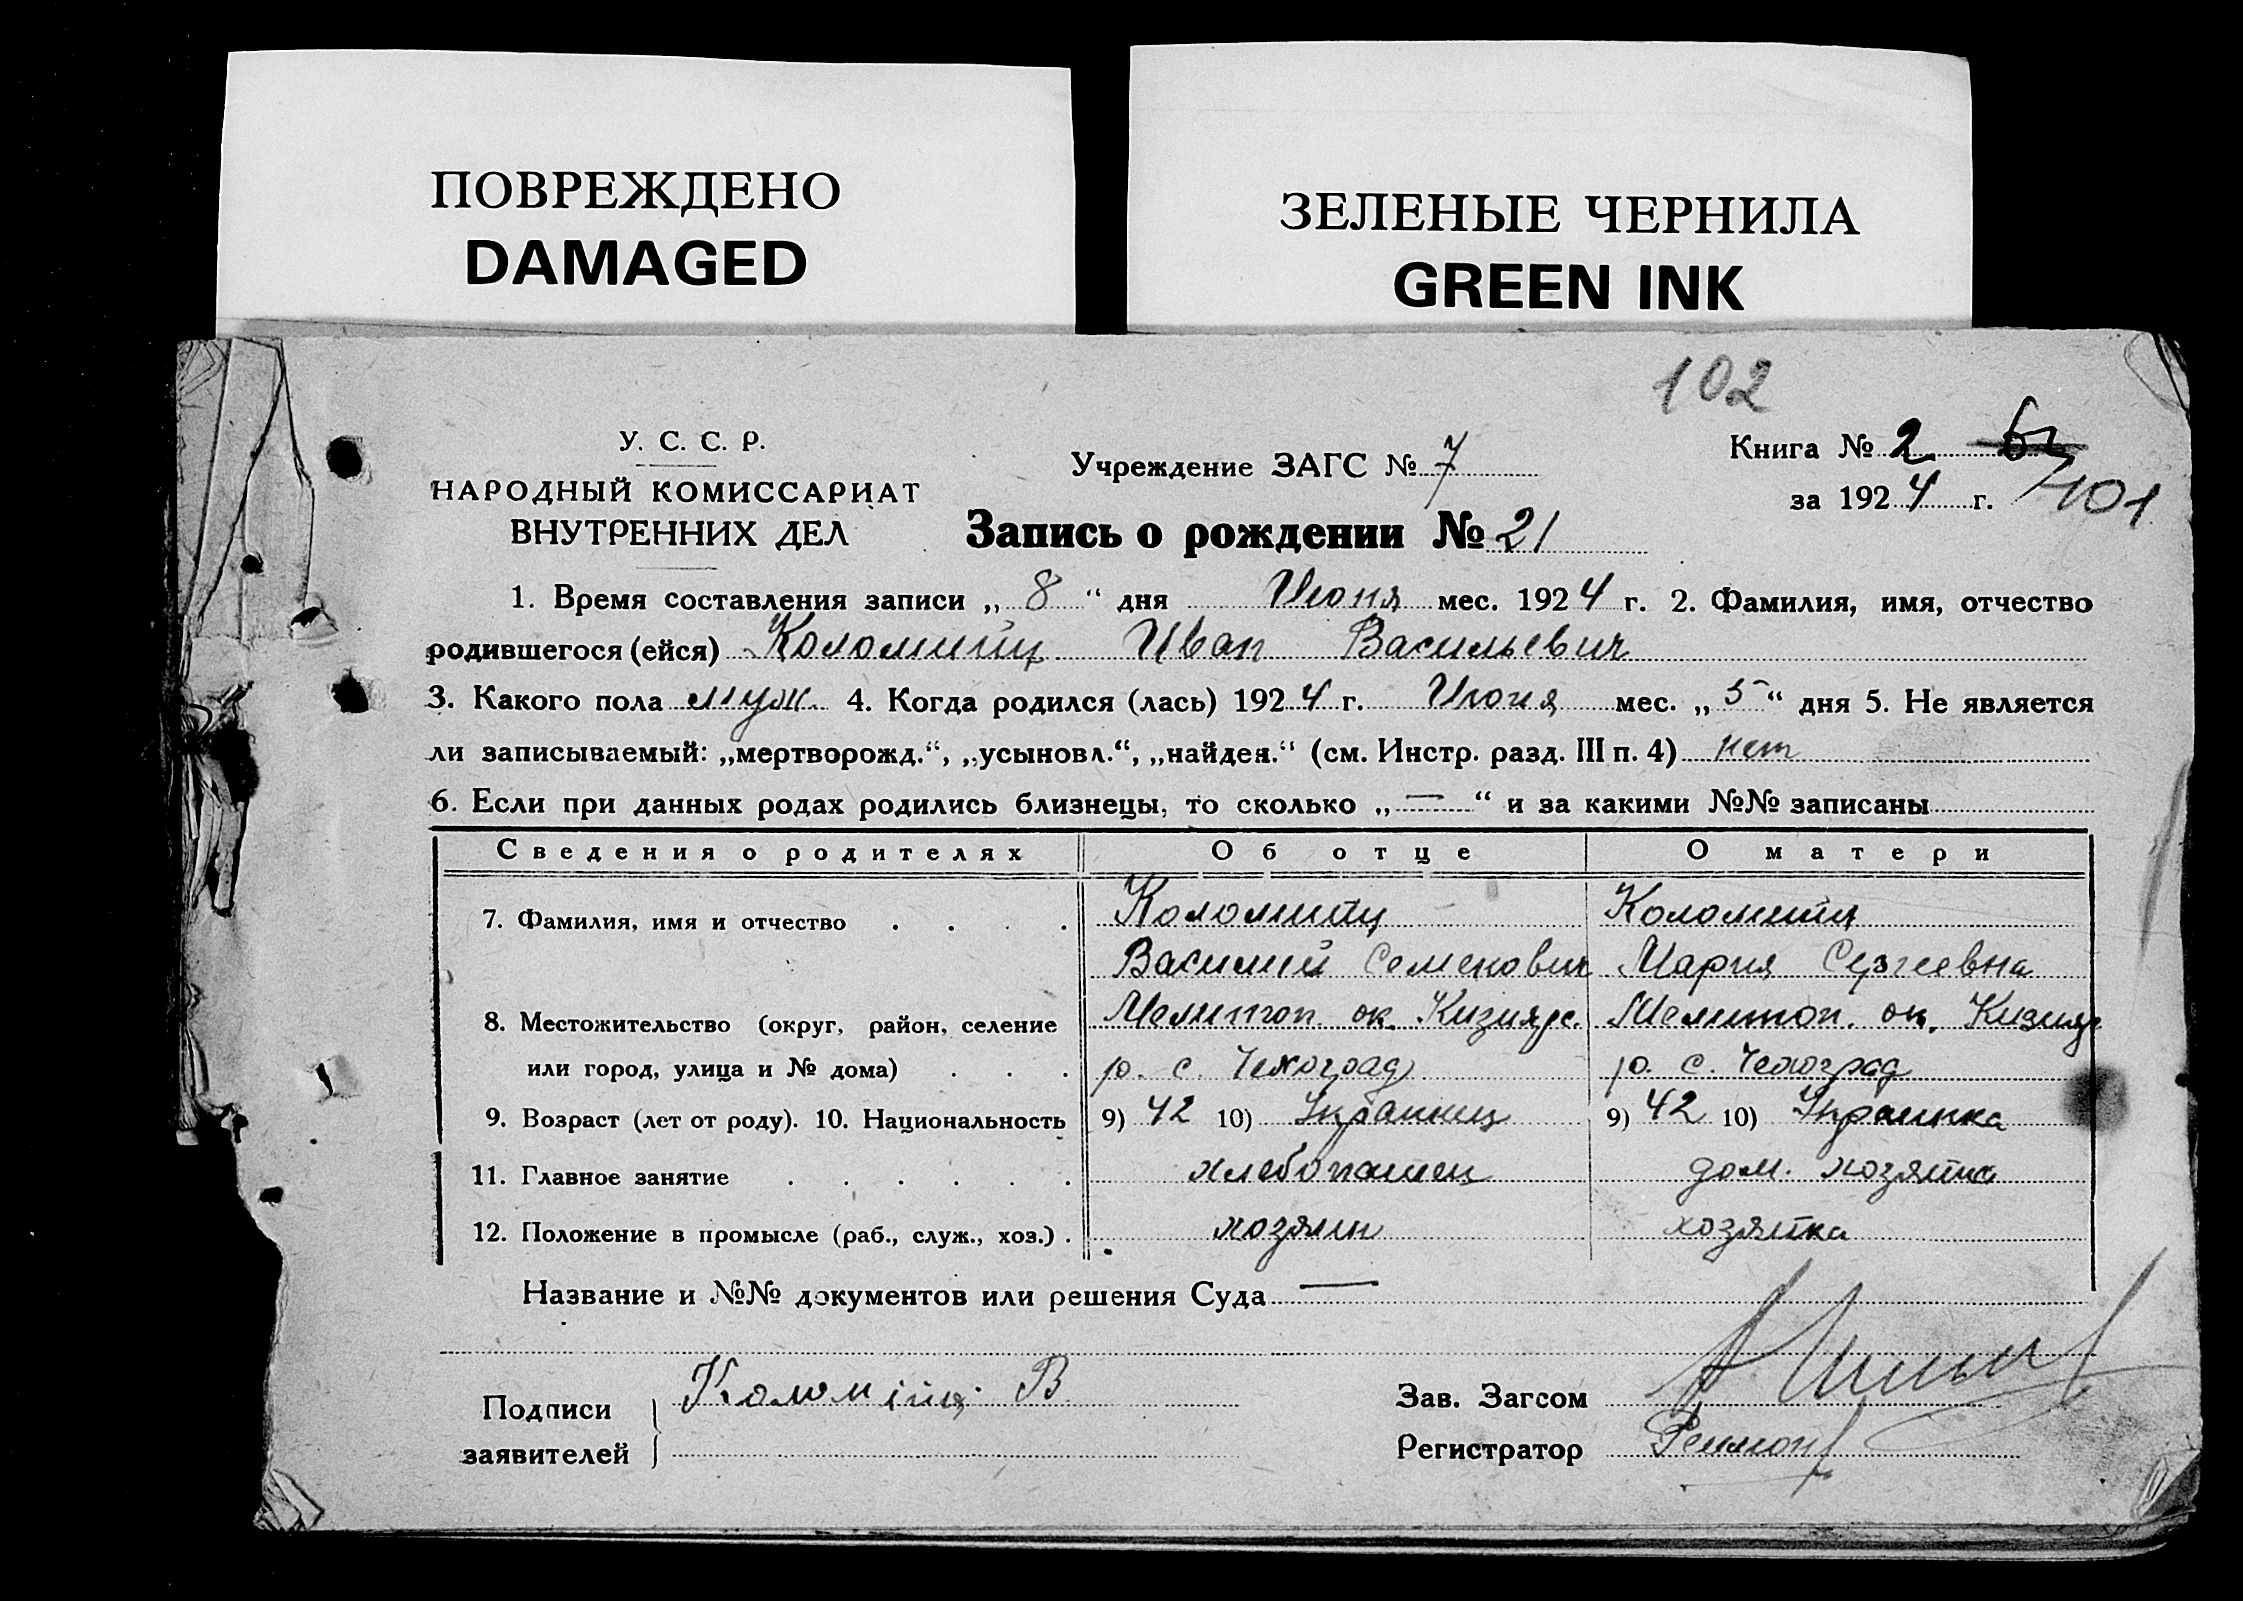 ПОВРЕЖДЕНО
DAMAGED
ЗЕЛЕНЫЕ ЧЕРНИЛА
GREEN INK
102
У. С. С. Р.
НАРОДНЫЙ КОМИССАРИАТ
ВНУТРЕННИХ ДЕЛ
Учреждение ЗАГС № 7
Книга № 2
за 1924 г. 101
Запись о рождении № 21
1. Время составления записи „ 8 “ дня Июня мес. 1924 г. 2. Фамилия, имя, отчество
родившегося (ейся) Коломийц Иван Васильевич
3. Какого пола муж. 4. Когда родился (лась) 1924 г. Июня мес. „ 5 “ дня 5. Не является
ли записываемый: „мертворожд.“, „усыновл.“, „найден.“ (см. Инстр. разд. III п. 4) нет
6. Если при данных родах родились близнецы, то сколько „ — “ и за какими №№ записаны
Сведения о родителях Об отце О матери
7. Фамилия, имя и отчество . . . . Коломийц Коломийц
Василий Семенович Мария Сергеевна
8. Местожительство (округ, район, селение Мелитоп. ок. Кизияр. Мелитоп. ок. Кизияр
или город, улица и № дома) . . . р. с. Чехоград р. с. Чехоград
9. Возраст (лет от роду). 10. Национальность 9) 42 10) Украинец 9) 42 10) Украинка
11. Главное занятие . . . . . . хлебопашец дом. хозяйка
12. Положение в промысле (раб., служ., хоз.) . хозяин хозяйка
Название и №№ документов или решения Суда —
Подписи Коломійц В
заявителей
Зав. Загсом
Регистратор